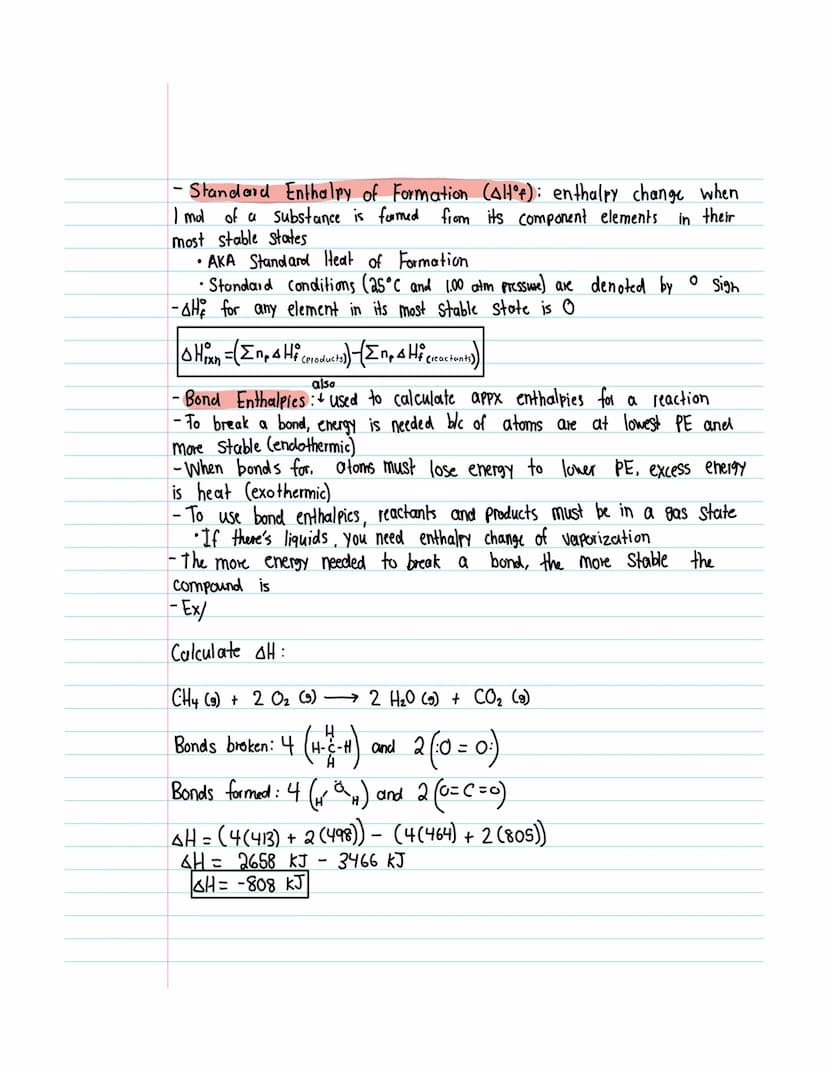 - Standard Enthalpy of Formation (ΔH°f): enthalpy change when
1 mol of a substance is formed from its component elements in their
most stable states
• AKA Standard Heat of Formation
• Standard conditions (25°C and 1.00 atm pressure) are denoted by ° sign
- ΔH°f for any element in its most stable state is 0
ΔH°rxn = (Σnp ΔH°f (products)) - (Σnp ΔH°f (reactants))
also
- Bond Enthalpies: ↓ used to calculate appx enthalpies for a reaction
- To break a bond, energy is needed b/c of atoms are at lowest PE and
more stable (endothermic)
- When bonds for, atoms must lose energy to lower PE, excess energy
is heat (exothermic)
- To use bond enthalpies, reactants and products must be in a gas state
• If there's liquids, you need enthalpy change of vaporization
- The more energy needed to break a bond, the more stable the
compound is
- Ex/
Calculate ΔH:
CH4 (g) + 2 O2 (g) ⟶ 2 H2O (g) + CO2 (g)
Bonds broken: 4 (H-C-H H H) and 2 (:O = O:)
Bonds formed: 4 (H O H) and 2 (O=C=O)
ΔH = (4(413) + 2(498)) - (4(464) + 2(805))
ΔH = 2658 KJ - 3466 KJ
ΔH = -808 KJ